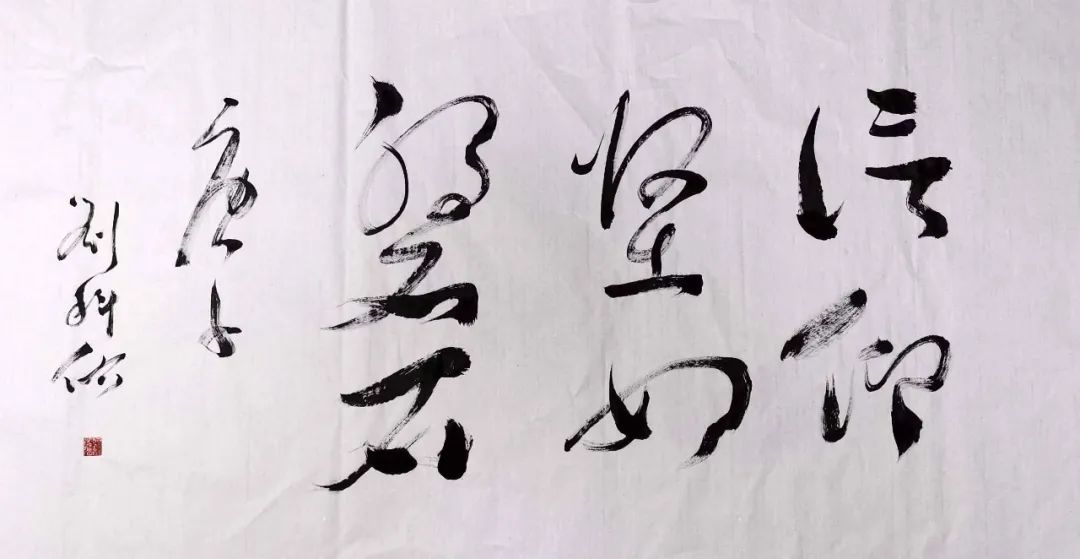 信仰
坚如
磐石
庚子
刘